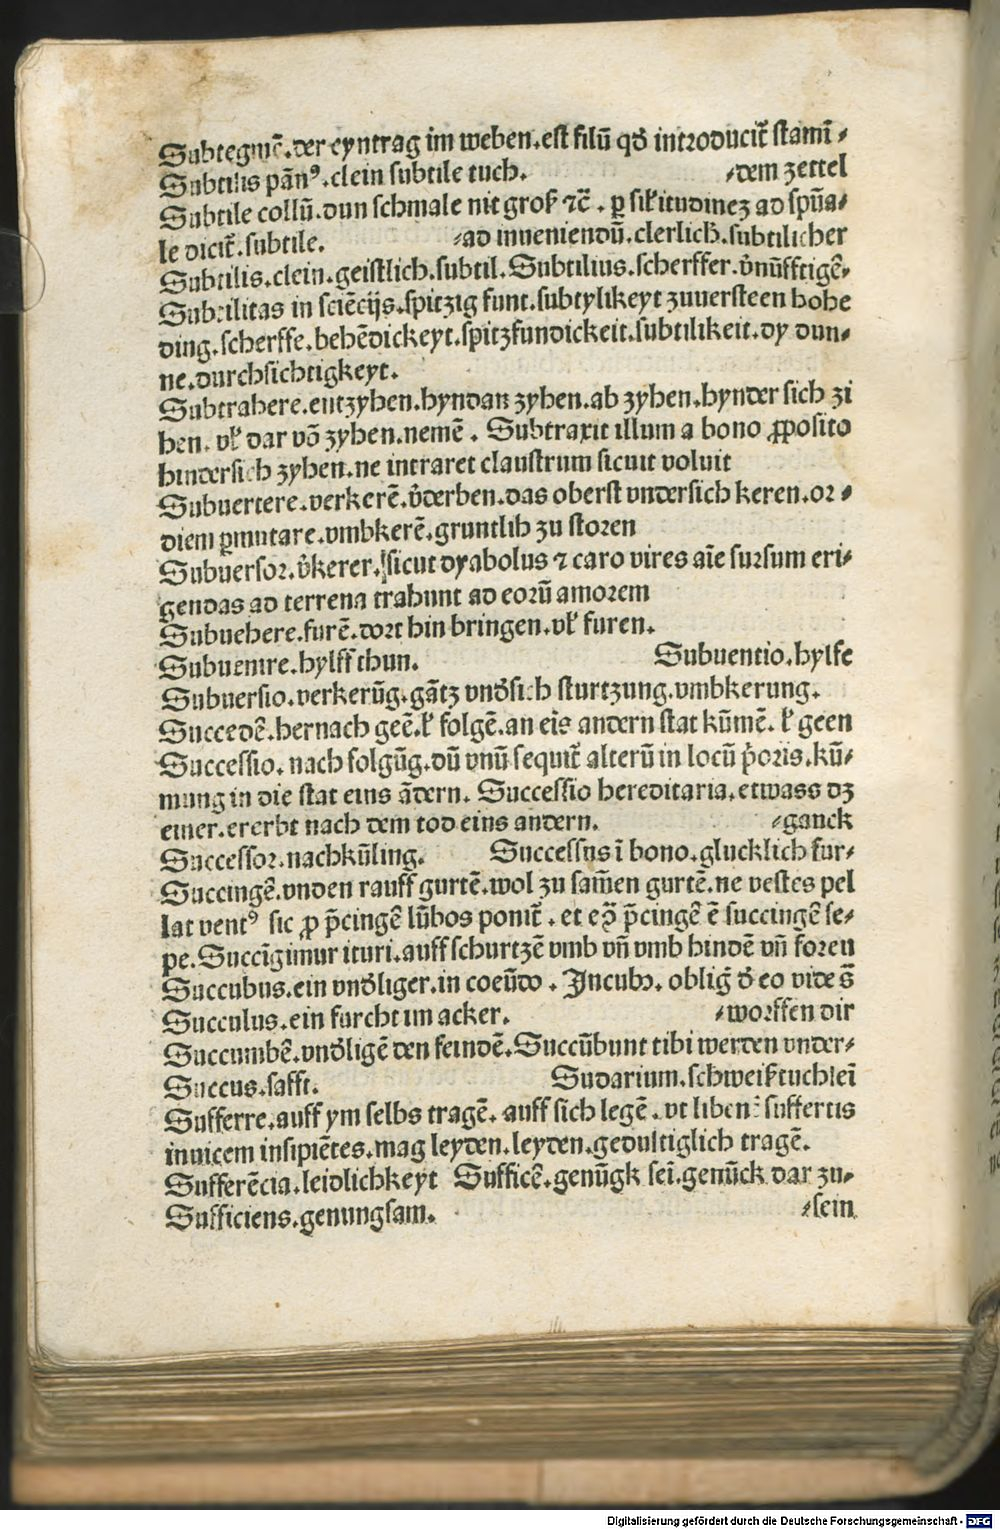 Subtegmē.der eyntrag im weben.est filū qđ introducit̃ stami⸗
Subtilis pãnꝰ.clein subtile tuch. ⸗dem zettel
Subtile collū.dun schmale nit groß ⁊c̃. ꝑ silitudinez ad spũa⸗
le dicit̃.subtile. ⸗ad inueniendū.clerlich.subtilicher
Subtilis.clein.geistlich.subtil.Subtilius.scherffer.v̓nũfftigē⸗
Subtilitas in sciēcijs.spitzig funt.subtylikeyt zuuersteen hohe
ding.scherffe.behēdickeyt.spitzfundickeit.subtilikeit.dy dun⸗
ne.durchsichtigkeyt.
Subtrahere.entzyhen.hyndan zyhen.ab zyhen.hynder sich zi
hen. vł dar vō zyhen.nemē. Subtraxit illum a bono ꝓposito
hindersich zyhen.ne intraret claustrum sicuit voluit
Subuertere.verkerē.v̓derben.das oberst vndersich keren.or⸗
diem ꝑmutare.vmbkerē.gruntlih zu storen
Subuersor.v̓kerer.sicut dyabolus ⁊ caro vires aīe sursum eri⸗
gendas ad terrena trahunt ad eorū amorem
Subuehere.furē.dort hin bringen.vł furen.
Subuenire.hylff thun. Subuentio.hylfe
Subuersio.verkerūg.gātz vnđsich sturtzung.vmbkerung.
Succedē.hernach geē.ł folgē.an eīs andern stat kūmē. ł geen
Successio.nach folgūg.dū vnū sequit̃ alterū in locū p̓oris.kū⸗
mung in die stat eins ādern. Successio hereditaria.etwass dz
einer.ererbt nach dem tod eins andern. ⸗ganck
Successor.nachkūling. Successus ī bono.glucklich fur⸗
Succingē.vnden rauff gurtē.wol zu sam̄en gurtē.ne vestes pel
lat ventꝰ sic ꝓ p̄cingē lūbos ponit̃. et eꝯ̃ p̄cingē ē succingē se⸗
pe.Succīgimur ituri.auff schurtzē vmb vñ vmb bindē vñ foren
Succubus.ein vnđliger.in coeūdo. Incubꝰ. obliq̃ đ eo vide s̄
Succulus.ein furcht im acker. ⸗worffen dir
Succumbē.vnđligē den feindē.Succūbunt tibi werden vnder⸗
Succus.safft. Sudarium.schweißtuchleī
Sufferre.auff ym selbs tragē. auff sich legē.vt libenꝰ suffertis
inuicem insipiētes.mag leyden.leyden.gedultiglich tragē.
Sufferēcia.leidlichkeyt Sufficē.genūgk seī.genūck dar zu⸗
Sufficiens.genungsam. ⸗sein
Digitalisierung gefördert durch die Deutsche Forschungsgemeinschaft - DFG